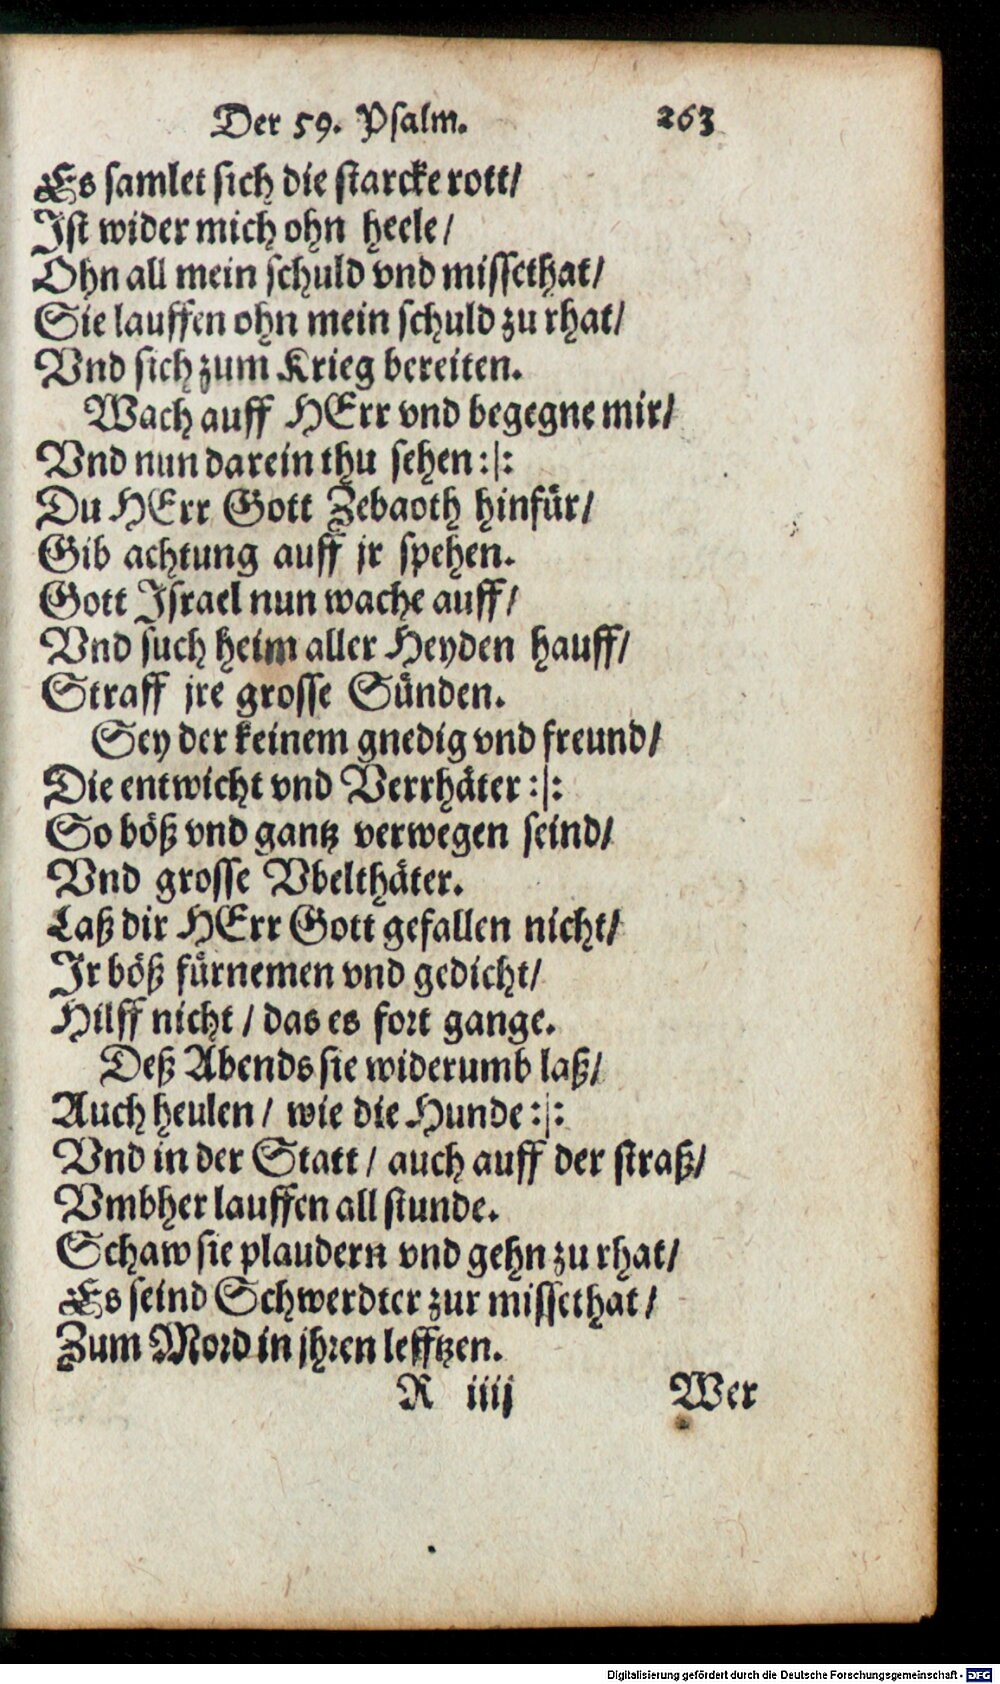 Der 59. Psalm. 263
Es samlet sich die starcke rott/
Ist wider mich ohn heele/
Ohn all mein schuld vnd missethat/
Sie lauffen ohn mein schuld zu rhat/
Vnd sich zum Krieg bereiten.
Wach auff HErr vnd begegne mir/
Vnd nun darein thu sehen :|:
Du HErr Gott Zebaoth hinfür/
Gib achtung auff jr spehen.
Gott Israel nun wache auff/
Vnd such heim aller Heyden hauff/
Straff jre grosse Sünden.
Sey der keinem gnedig vnd freund/
Die entwicht vnd Verrhäter :|:
So böß vnd gantz verwegen seind/
Vnd grosse Vbelthäter.
Laß dir HErr Gott gefallen nicht/
Ir böß fürnemen vnd gedicht/
Hilff nicht / das es fort gange.
Deß Abends sie widerumb laß/
Auch heulen / wie die Hunde :|:
Vnd in der Statt / auch auff der straß/
Vmbher lauffen all stunde.
Schaw sie plaudern vnd gehn zu rhat/
Es seind Schwerdter zur missethat/
Zum Mord in jhren lefftzen.
R iiij Wer
Digitalisierung gefördert durch die Deutsche Forschungsgemeinschaft - DFG